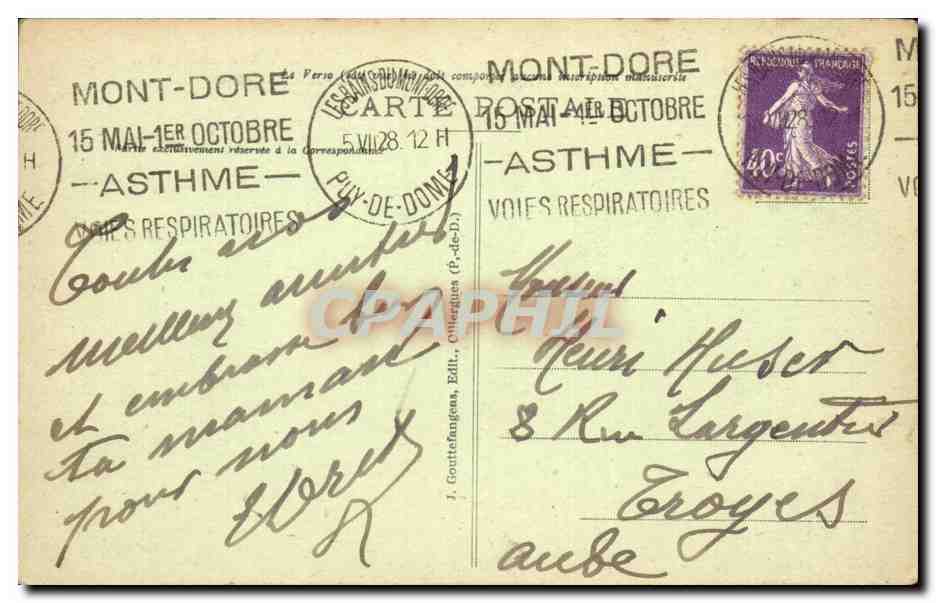 Le Verso
composer aucune inscription manuscrite
CARTE POSTALE
exclusivement réservée à la Correspondance
MONT-DORE
15 MAI-1ER OCTOBRE
ASTHME
VOIES RESPIRATOIRES
LES BAINS DU MONT-DORE
5 VII 28. 12 H
PUY-DE-DOME
MONT-DORE
15 MAI-1ER OCTOBRE
ASTHME
VOIES RESPIRATOIRES
REPUBLIQUE FRANCAISE
40c
POSTES
Toutes nos
meilleures amitiés
et embrasse bien
ta maman
pour nous
J. Gouttefangeas, Edit., Olliergues (P.-de-D.)
CPAPHIL
Monsieur
Henri
8 Rue Largentier
Troyes
Aube